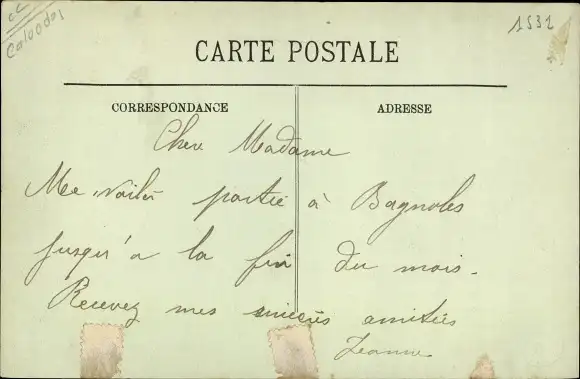 1532
CARTE POSTALE
CORRESPONDANCE
ADRESSE
Chere Madame
Me voilà partie à Bagnoles
jusqu'a la fin du mois.
Recevez mes sincères amitiés
Jeanne